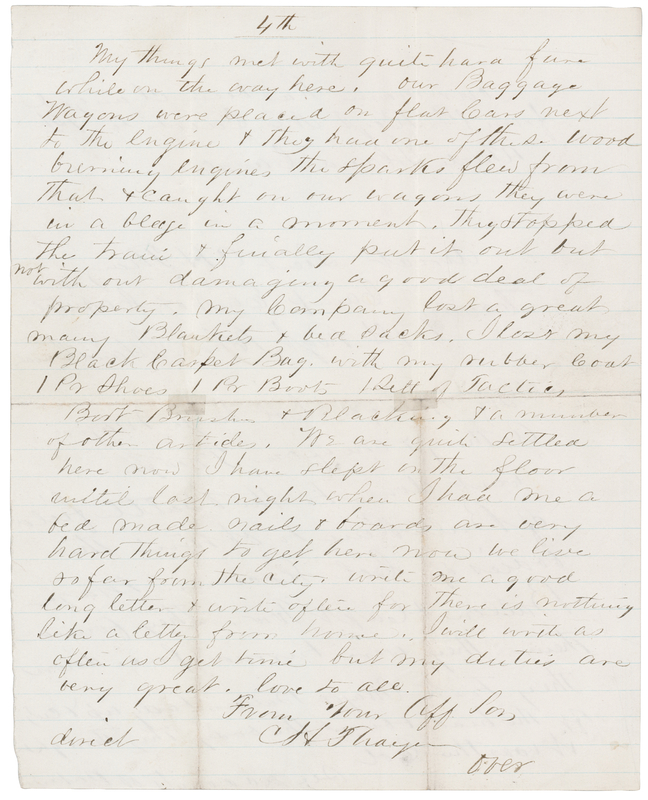 4th
My things met with quite hard fare
while on the way here. our Baggage
Wagons were placed on flat Cars next
to the Engine & they had one of these wood
burning engines the sparks flew from
that & caught on our wagons they were
in a blaze in a moment. they stopped
the train & finally put it out but
not with out damaging a good deal of
property. my Company lost a great
many Blankets & bed sacks. I lost my
Black Carpet Bag. with my rubber Coat
1 Pr Shoes 1 Pr Boots of Tactics
Boot Brushes & Blacking & a number
of other articles. We are quite settled
here now I have slept on the floor
until last night when I had me a
bed made nails & boards are very
hard things to get here now we live
so far from the city. write me a good
long letter & write often for there is nothing
like a letter from home. I will write as
often as I get time but my duties are
very great. love to all.
From Your Aff Son
direct C H Thayer
over